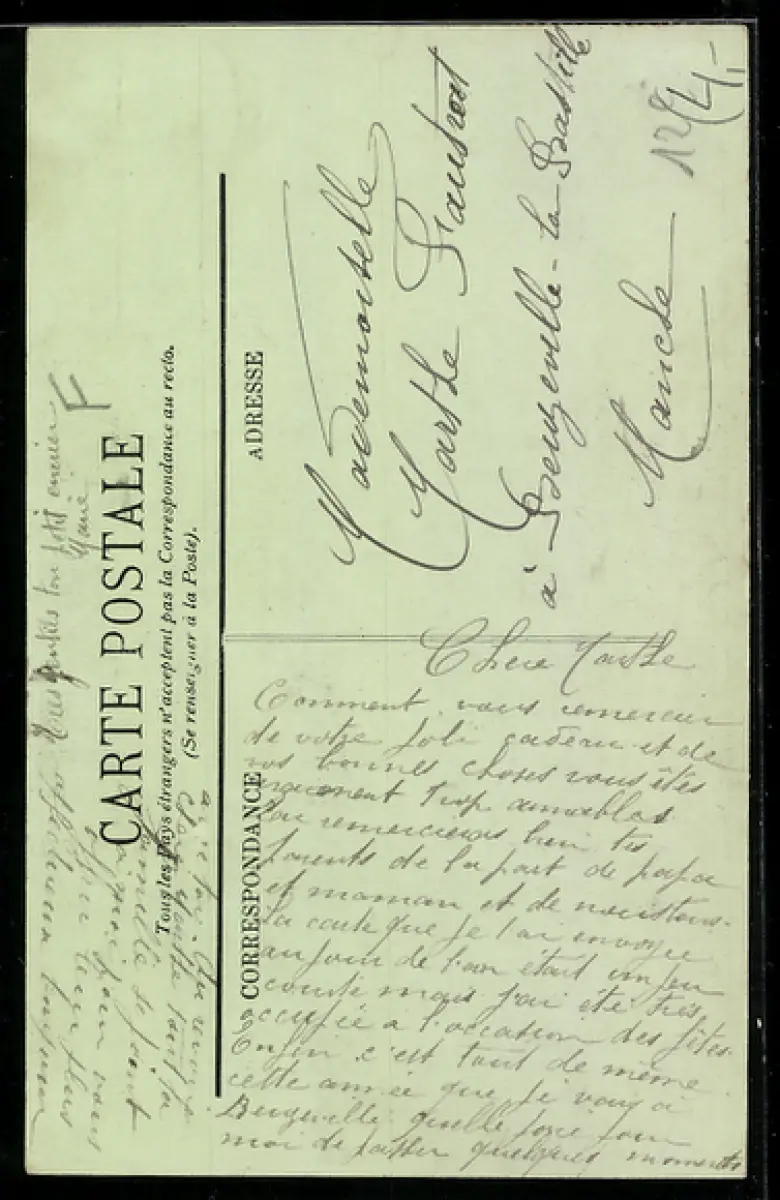 CARTE POSTALE
Tous les Pays étrangers n'acceptent pas la Correspondance au recto.
(Se renseigner à la Poste).
CORRESPONDANCE
ADRESSE
Mademoiselle
Marthe
à Beuzeville-la Bastille
Manche
12/4,-
F
Chère Marthe
Comment vous remercier
de votre joli cadeau et de
vos bonnes choses vous êtes
vraiment trop aimables
remercieras bien tes
parents de la part de papa
et maman et de nous tous.
La carte que je t'ai envoyée
au jour de l'an était un peu
courte mais j'ai été très
occupée à l'occasion des fêtes.
Enfin c'est tout de même
cette année que je vais à
Beuzeville quelle joie pour
moi de passer quelques moments
avec toi
Chère Marthe toute la
famille se joint
à moi pour vous
plus
affectueux
ton
Marie